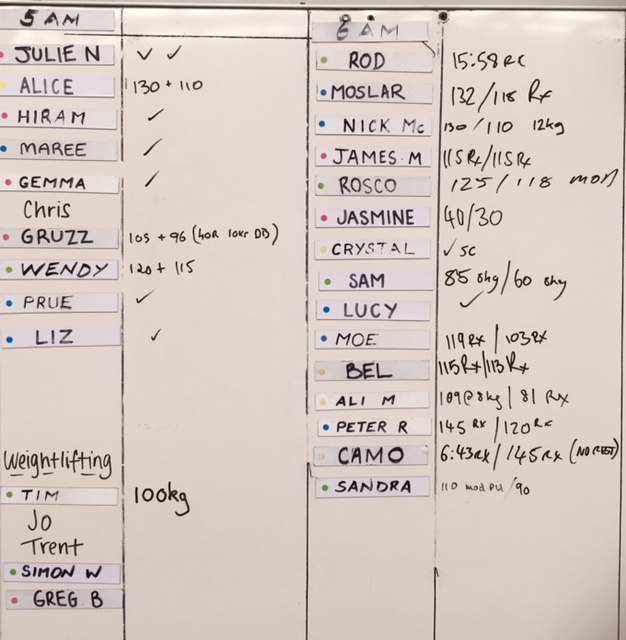 5 AM
JULIE N ✓ ✓
ALICE 130 + 110
HIRAM ✓
MAREE ✓
GEMMA ✓
Chris
GRUZZ 105 + 96 (40R 10kr DB)
WENDY 120 + 115
PRUE ✓
LIZ ✓
Weightlifting
TIM 100kg
Jo
Trent
SIMON W
GREG B
6 AM
ROD 15:58 RX
MOSLAR 132/118 Rx
NICK Mc 130/110 12kg
JAMES M 115 Rx/115 Rx
ROSCO 125/118 mod
JASMINE 40/30
CRYSTAL ✓ SC
SAM 85 8kg/60 8kg
LUCY ✓
MOE 119 RX | 103 RX
BEL 115 Rx/113 Rx
ALI M 109@8kg | 81 RX
PETER R 145 RX/120 RX
CAMO 6:43 RX/145 RX (NO REST)
SANDRA 110 mod PU/90